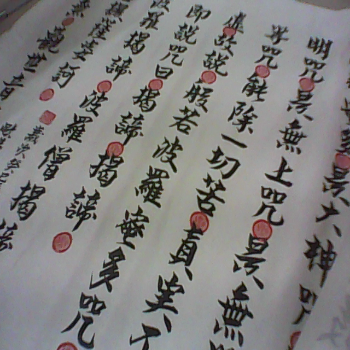 是大神咒
明咒是無上咒是無
等咒能除一切苦真實不
虛故說般若波羅蜜多咒
即說咒曰揭諦揭諦
波羅揭諦波羅僧揭諦
薩婆訶
觀世音